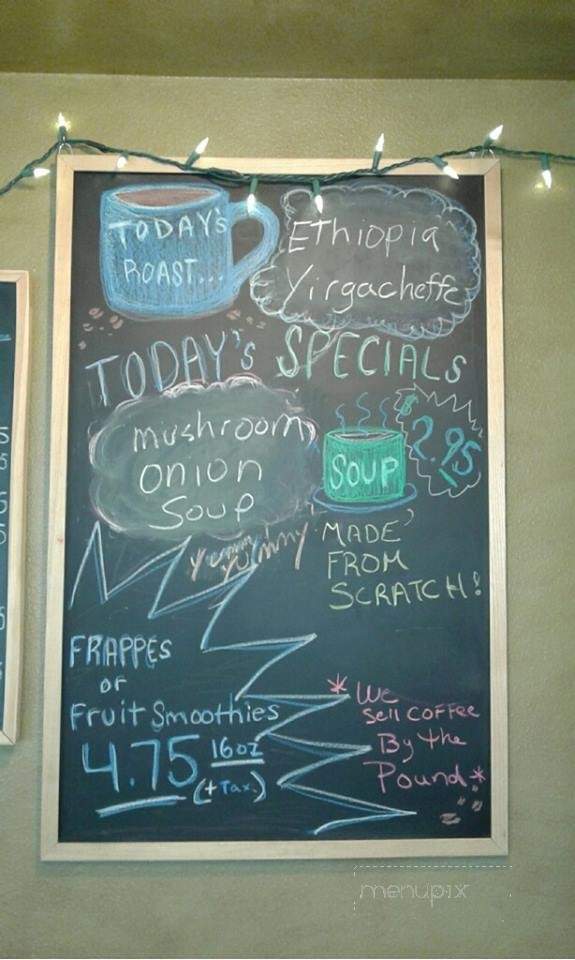 TODAY'S
ROAST...
Ethiopia
Yirgacheffe
TODAY'S SPECIALS
mushroom
onion
Soup
$2.95
SOUP
yummy yummy
MADE
FROM
SCRATCH!
FRAPPES
or
Fruit Smoothies
4.75 16oz
(+Tax.)
*We
Sell COFFEE
By the
Pound*
menupix